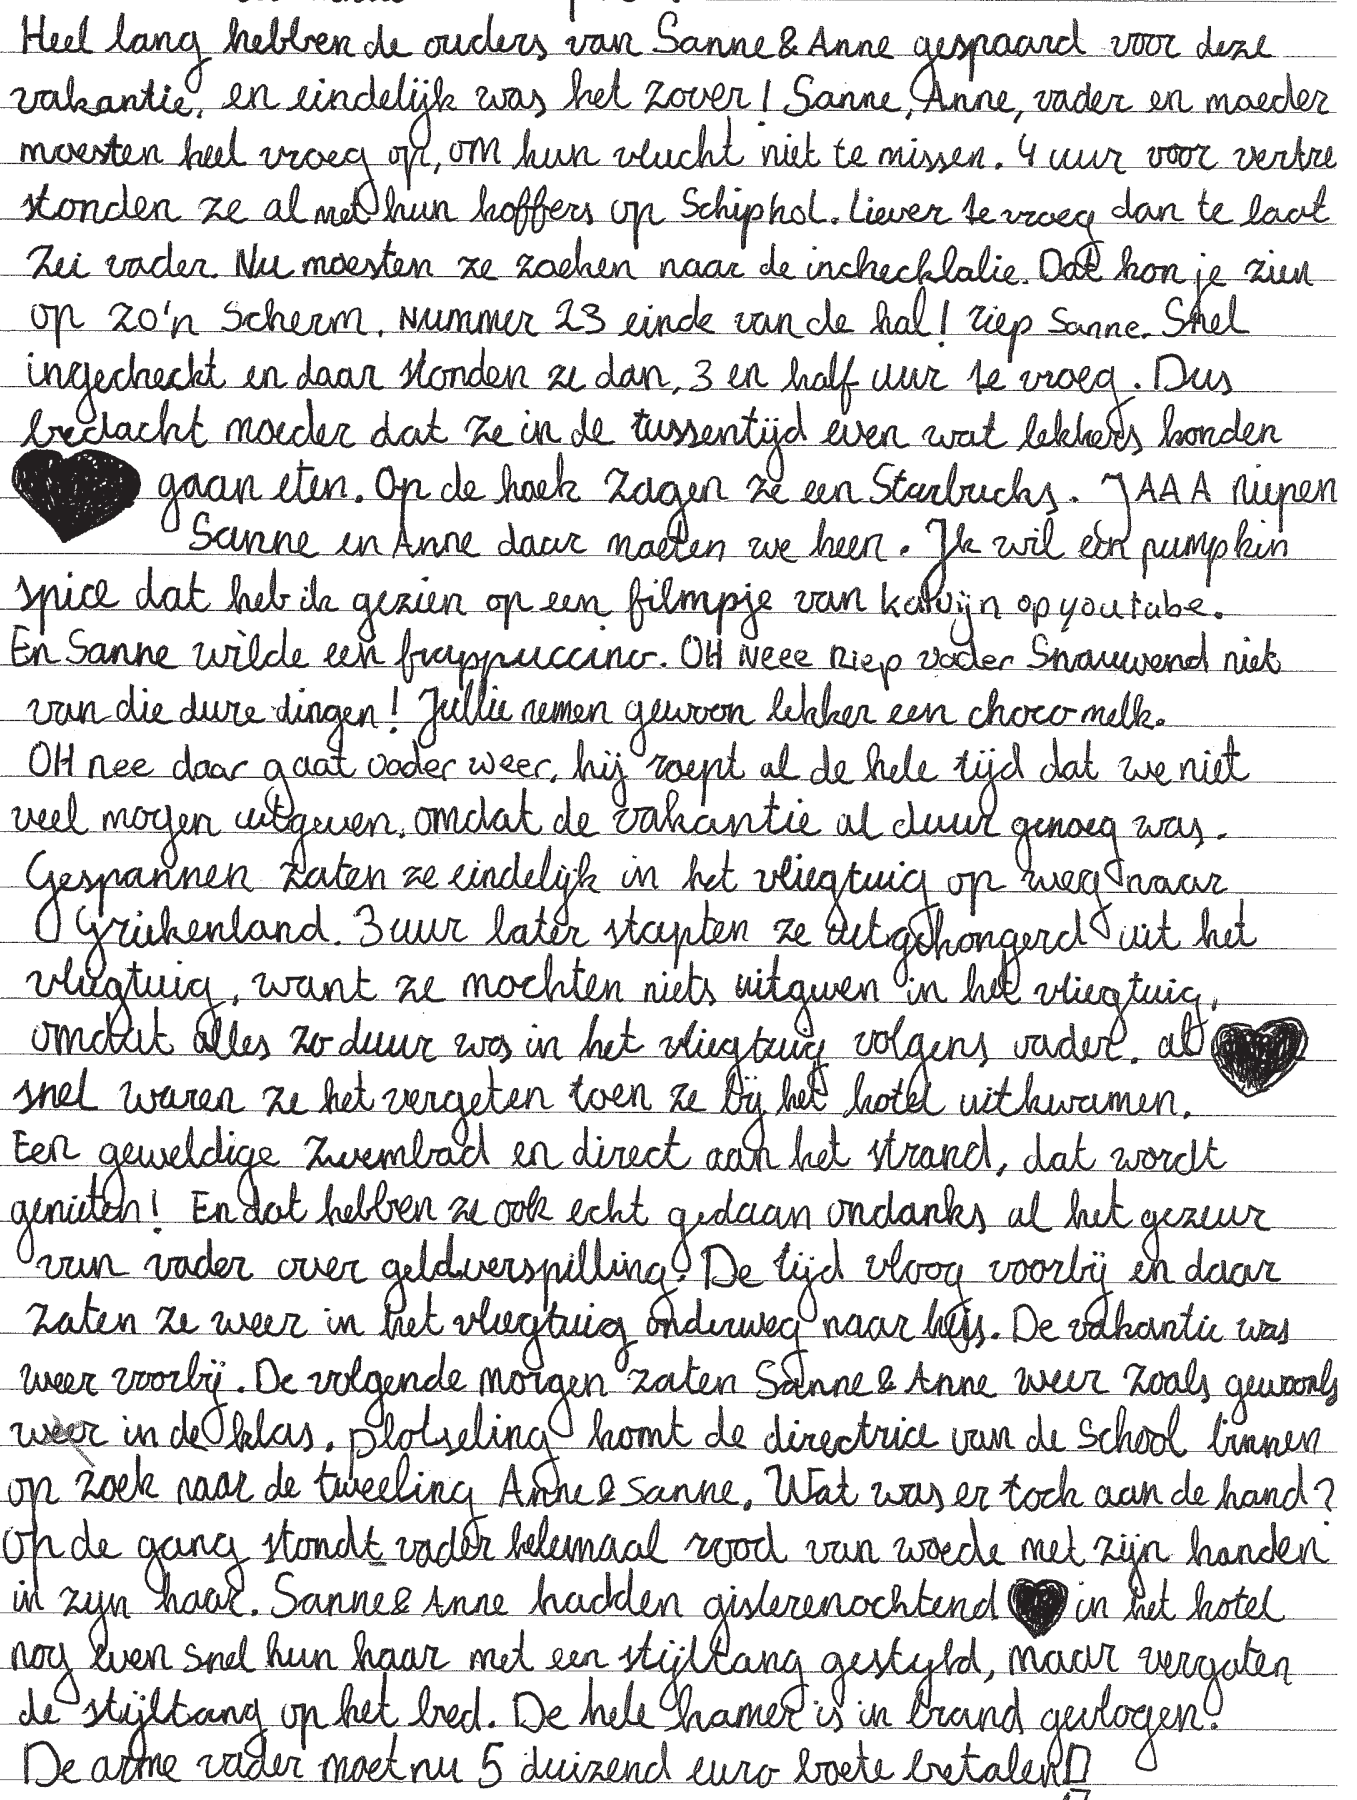 Heel lang hebben de ouders van Sanne & Anne gespaard voor deze
vakantie, en eindelijk was het zover! Sanne, Anne, vader en moeder
moesten heel vroeg op, om hun vlucht niet te missen. 4 uur voor vertre
stonden ze al met hun koffers op Schiphol. Liever te vroeg dan te laat
Zei vader. Nu moesten ze zoeken naar de inchecklalie. Dat kon je zien
op zo'n Scherm. Nummer 23 einde van de hal! riep Sanne. Snel
ingecheckt en daar stonden ze dan, 3 en half uur te vroeg. Dus
bedacht moeder dat ze in de tussentijd even wat lekkers konden
gaan eten. Op de hoek zagen ze een Starbucks. JAAA riepen
Sanne en Anne daar moeten we heen. Ik wil één pumpkin
spice dat heb ik gezien op een filmpje van kalvijn op youtube.
En Sanne wilde een frappuccino. OH Neee Riep vader Snauwend niet
van die dure dingen! Jullie nemen gewoon lekker een chocomelk.
OH nee daar gaat vader weer, hij roept al de hele tijd dat we niet
veel mogen uitgeven, omdat de vakantie al duur genoeg was.
Gespannen zaten ze eindelijk in het vliegtuig op weg naar
Griekenland. 3 uur later stapten ze uitgehongerd uit het
vliegtuig, want ze mochten niets uitgeven in het vliegtuig,
omdat alles zo duur was in het vliegtuig volgens vader. al
snel waren ze het vergeten toen ze bij het hotel uitkwamen.
Een geweldige zwembad en direct aan het strand, dat wordt
genieten! En dat hebben ze ook echt gedaan ondanks al het gezeur
van vader over geldverspilling. De tijd vloog voorbij en daar
zaten ze weer in het vliegtuig onderweg naar huis. De vakantie was
weer voorbij. De volgende morgen zaten Sanne & Anne weer zoals gewoonls
weer in de klas. plotseling komt de directrice van de School binnen
op zoek naar de tweeling Anne & Sanne. Wat was er toch aan de hand?
Op de gang stondt vader helemaal rood van woede met zijn handen
in zijn haar. Sanne & Anne hadden gisterenochtend in het hotel
nog even snel hun haar met een stijltang gestyld, maar vergaten
de stijltang op het bed. De hele kamer is in brand gevlogen.
De arme vader moet nu 5 duizend euro boete betalen!